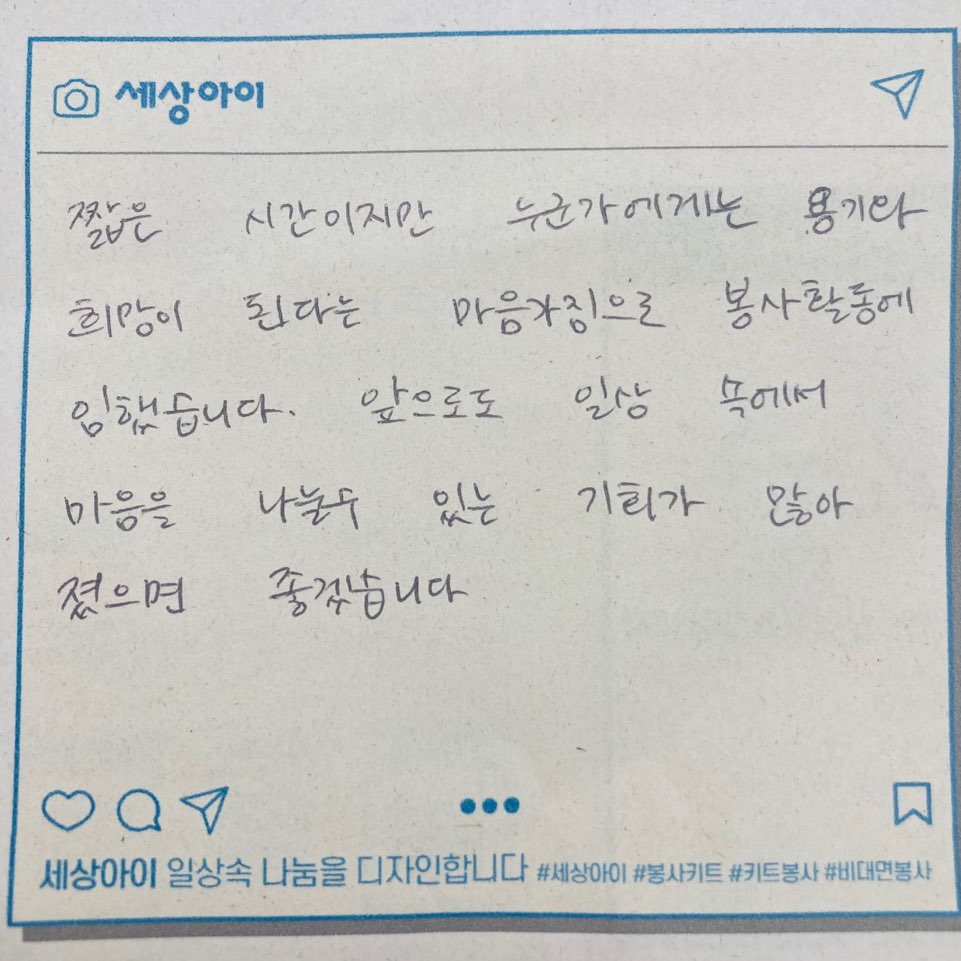 세상아이
짧은 시간이지만 누군가에게는 용기와
희망이 된다는 마음가짐으로 봉사활동에
임했습니다. 앞으로도 일상 속에서
마음을 나눌수 있는 기회가 많아
졌으면 좋겠습니다
세상아이 일상속 나눔을 디자인합니다 #세상아이 #봉사키트 #키트봉사 #비대면봉사